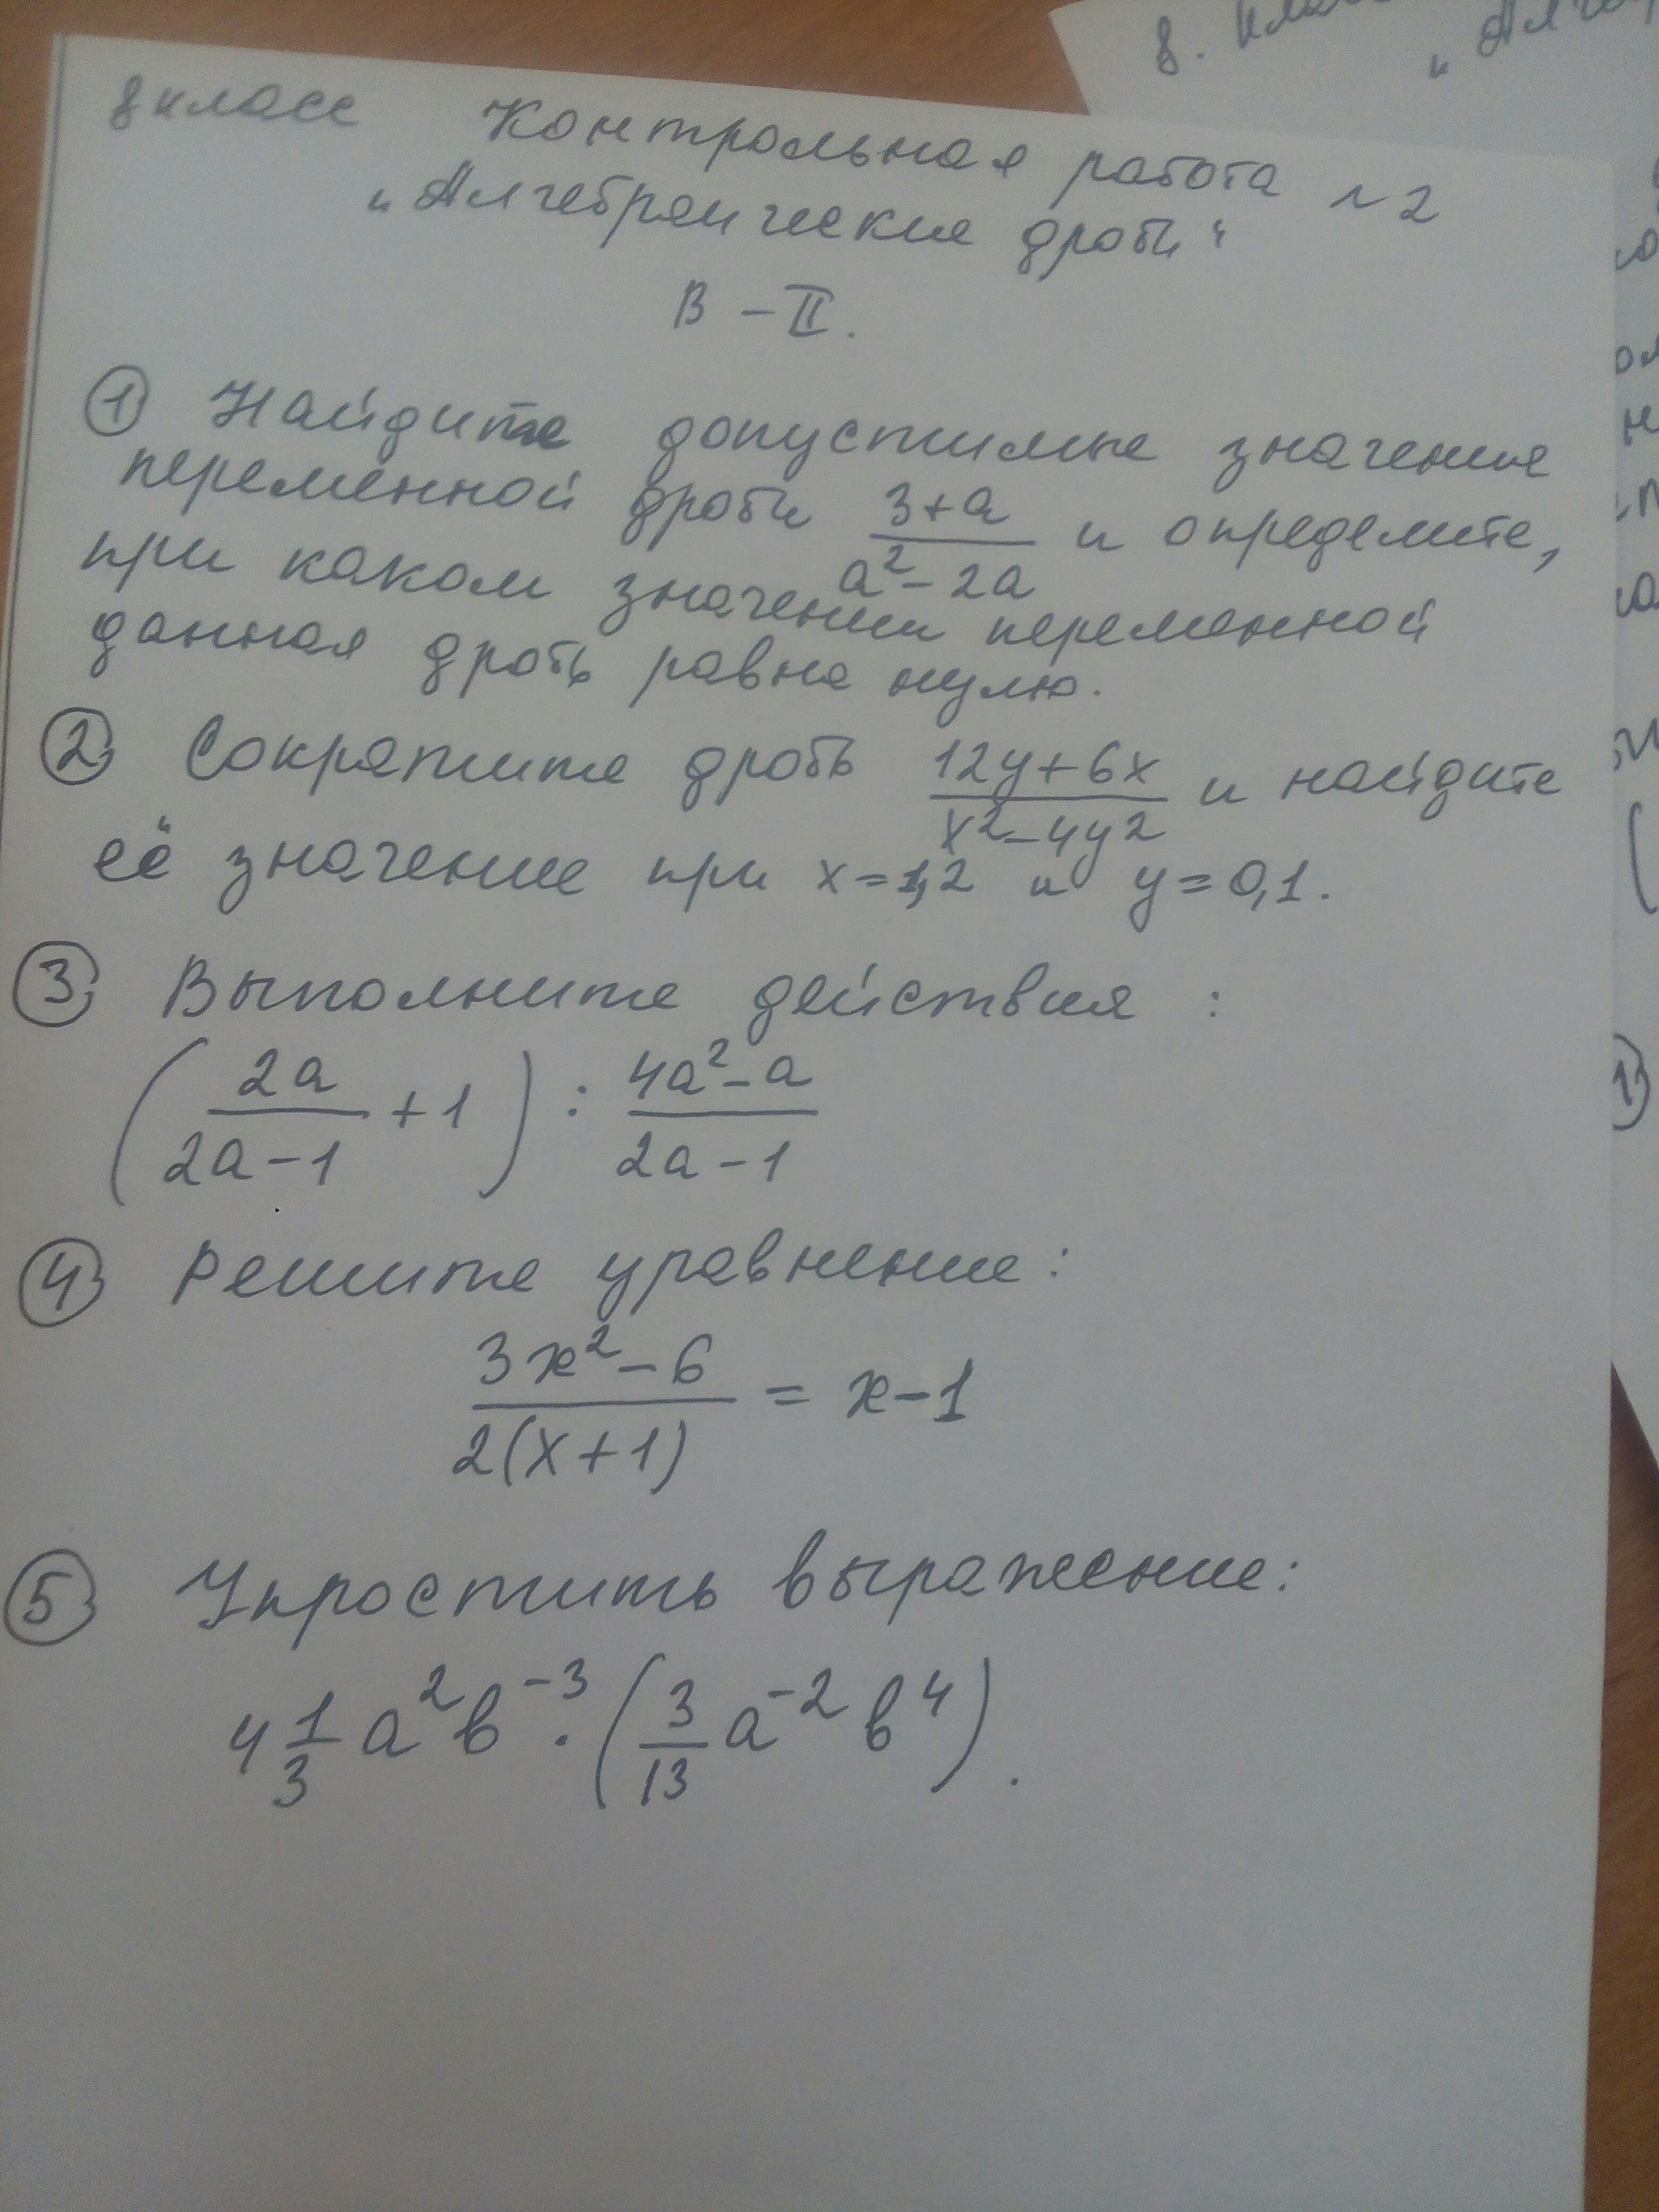 8 класс Контрольная работа N2
"Алгебраические дроби"
В – II.
① Найдите допустимые значения
переменной дроби (3+a)/(a²-2a) и определите,
при каком значении переменной
данная дробь равна нулю.
② Сократите дробь (12y+6x)/(x²-4y²) и найдите
её значение при x=1,2 и y=0,1.
③ Выполните действия :
(2a/(2a-1) + 1) : (4a²-a)/(2a-1)
④ Решите уравнение:
(3x²-6)/(2(x+1)) = x-1
⑤ Упростить выражение:
4 1/3 a²b⁻³ · (3/13 a⁻² b⁴).
8. клас
"Алгеб
1)